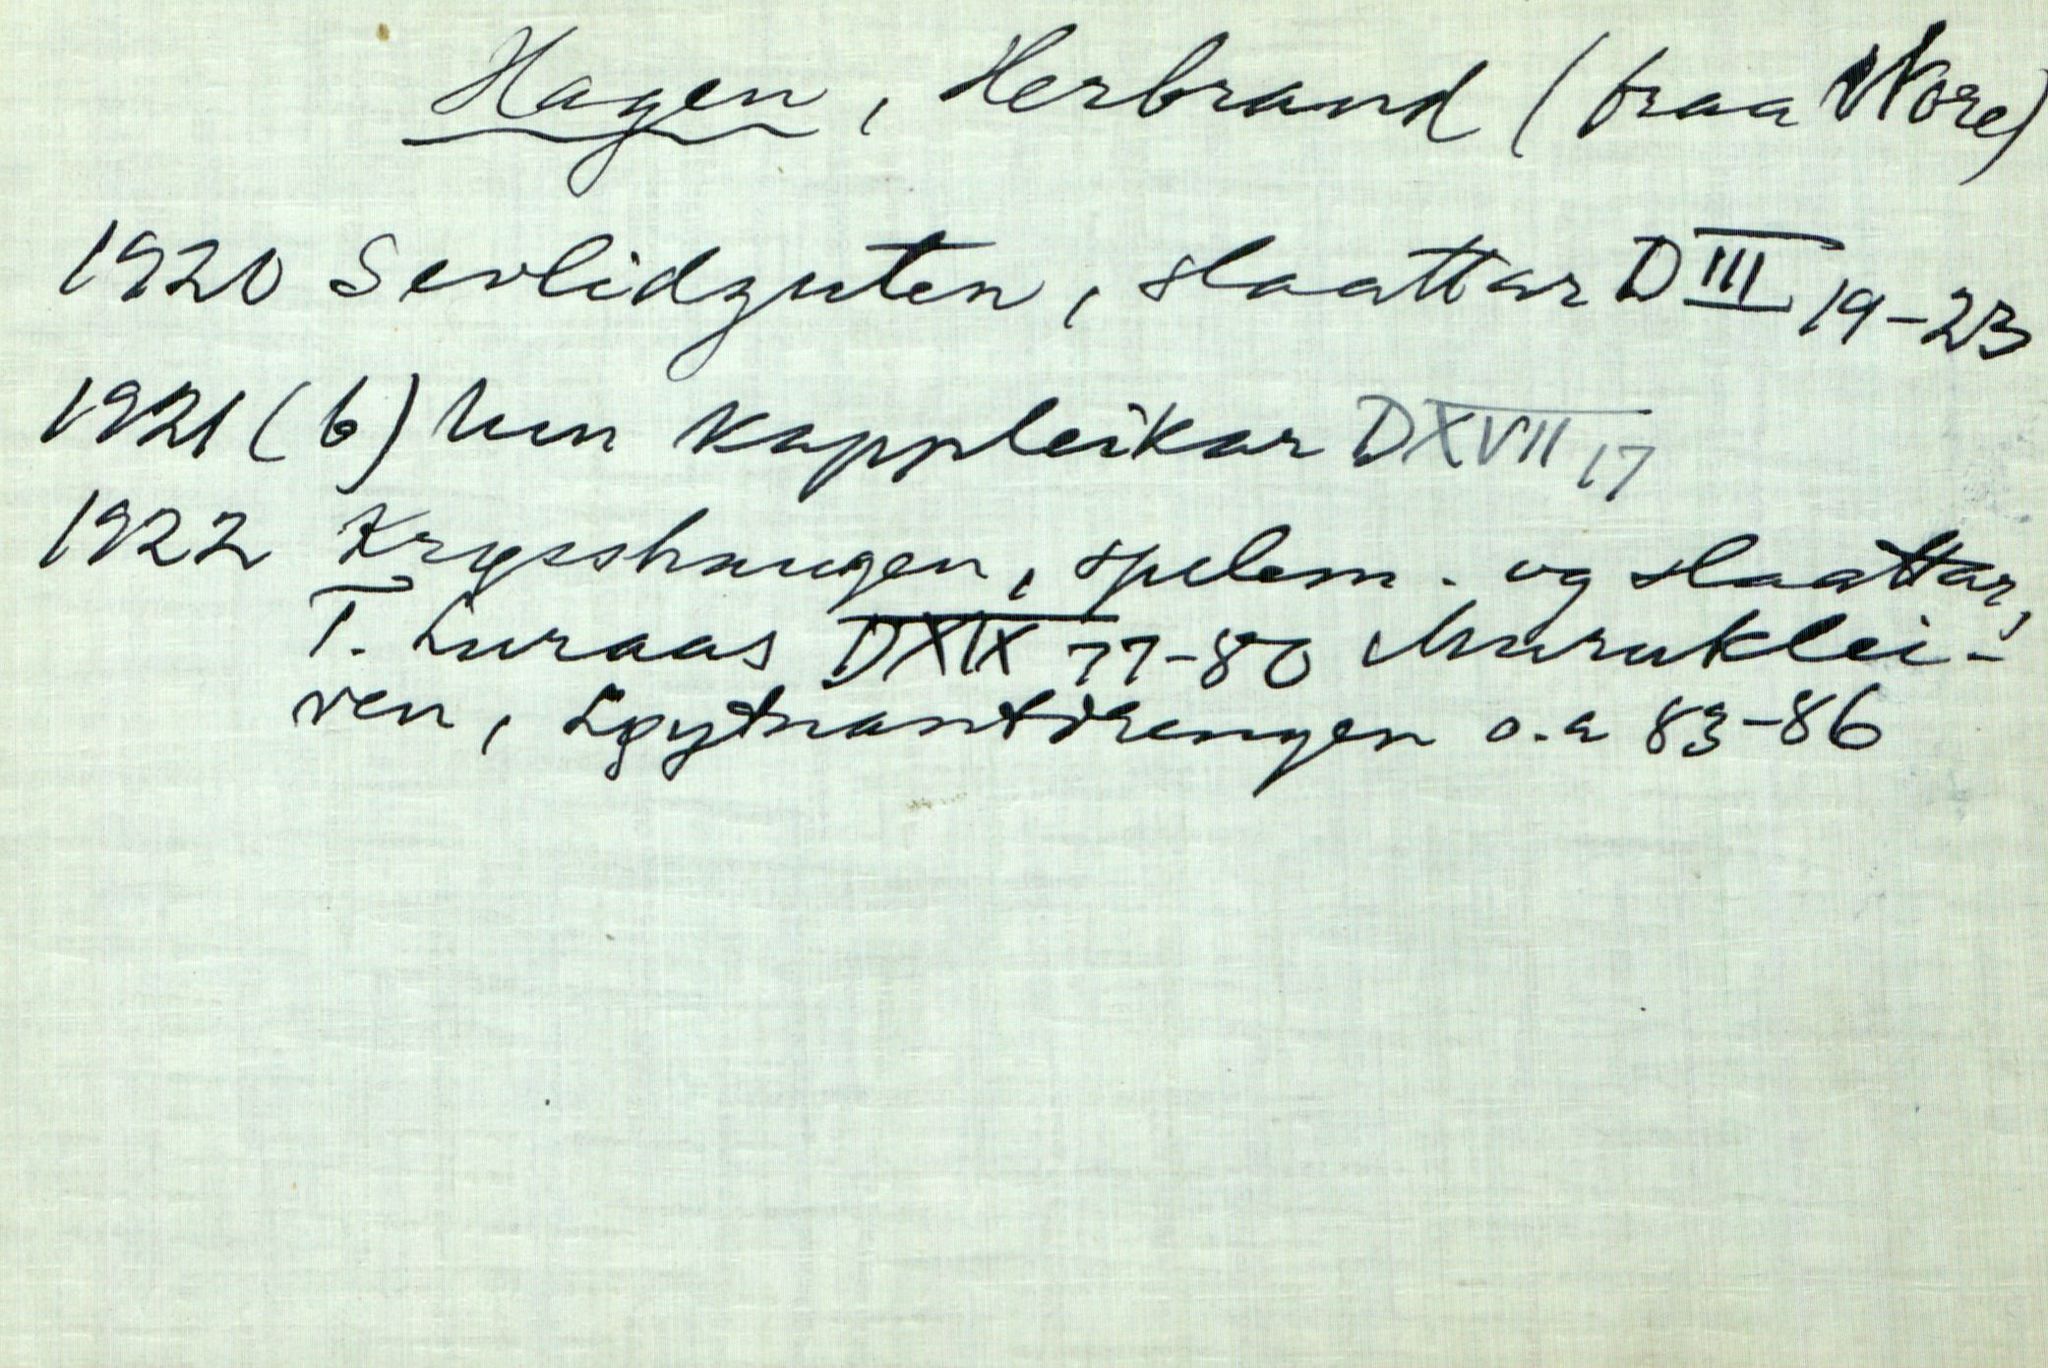 Hagen, Herbrand (fraa Nore)
1920 Sevlidguten, slaattar D III 19-23
1921 (b) Um kappleikar D XVII 17
1922 Krysshaugen, spelem. og slaattar,
T. Luraas D XIX 77-80 Muruklei-
ven, 83-86